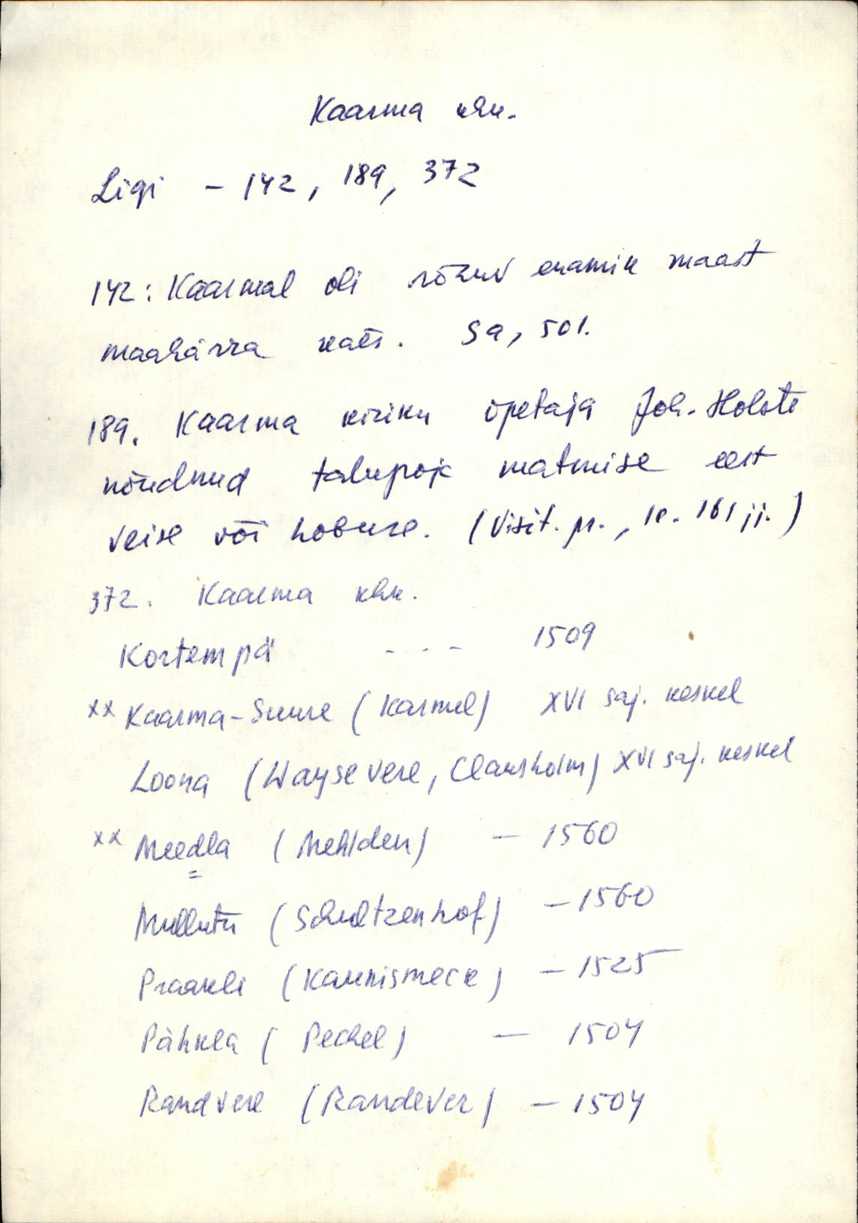 Kaarma khk.
Ligi - 142, 189, 372
142: Kaarmal oli rõhuv enamik maast
maahärra käes. Sa, 501.
189. Kaarma kiriku õpetaja Joh. Holste
nõudnud talupoja matmise eest
veise või hobuse. (Visit. pr., lk. 161 jj.)
372. Kaarma khk.
Kortempä - - - 1509
xx Kaarma-Suure (Karmel) XVI saj. keskel
Loona (Waysevere, Clausholm) XVI saj. keskel
xx Meedla (Mehlden) - 1560
Mullutu (Schultzenhof) - 1560
Praakli (Kaunismeck) - 1525
Pähkla (Pechel) - 1504
Randvere (Randever) - 1504